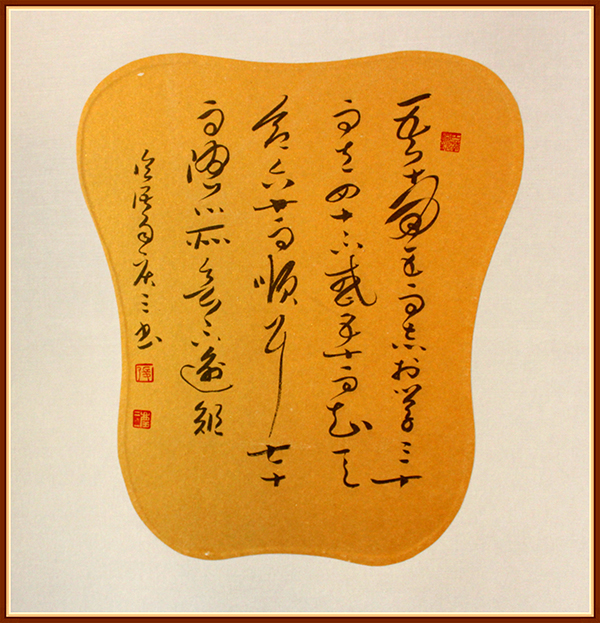 吾十有五而志於学三十
而立四十不惑五十而知天
命六十而順耳七十
而從心所欲不逾矩
論語句